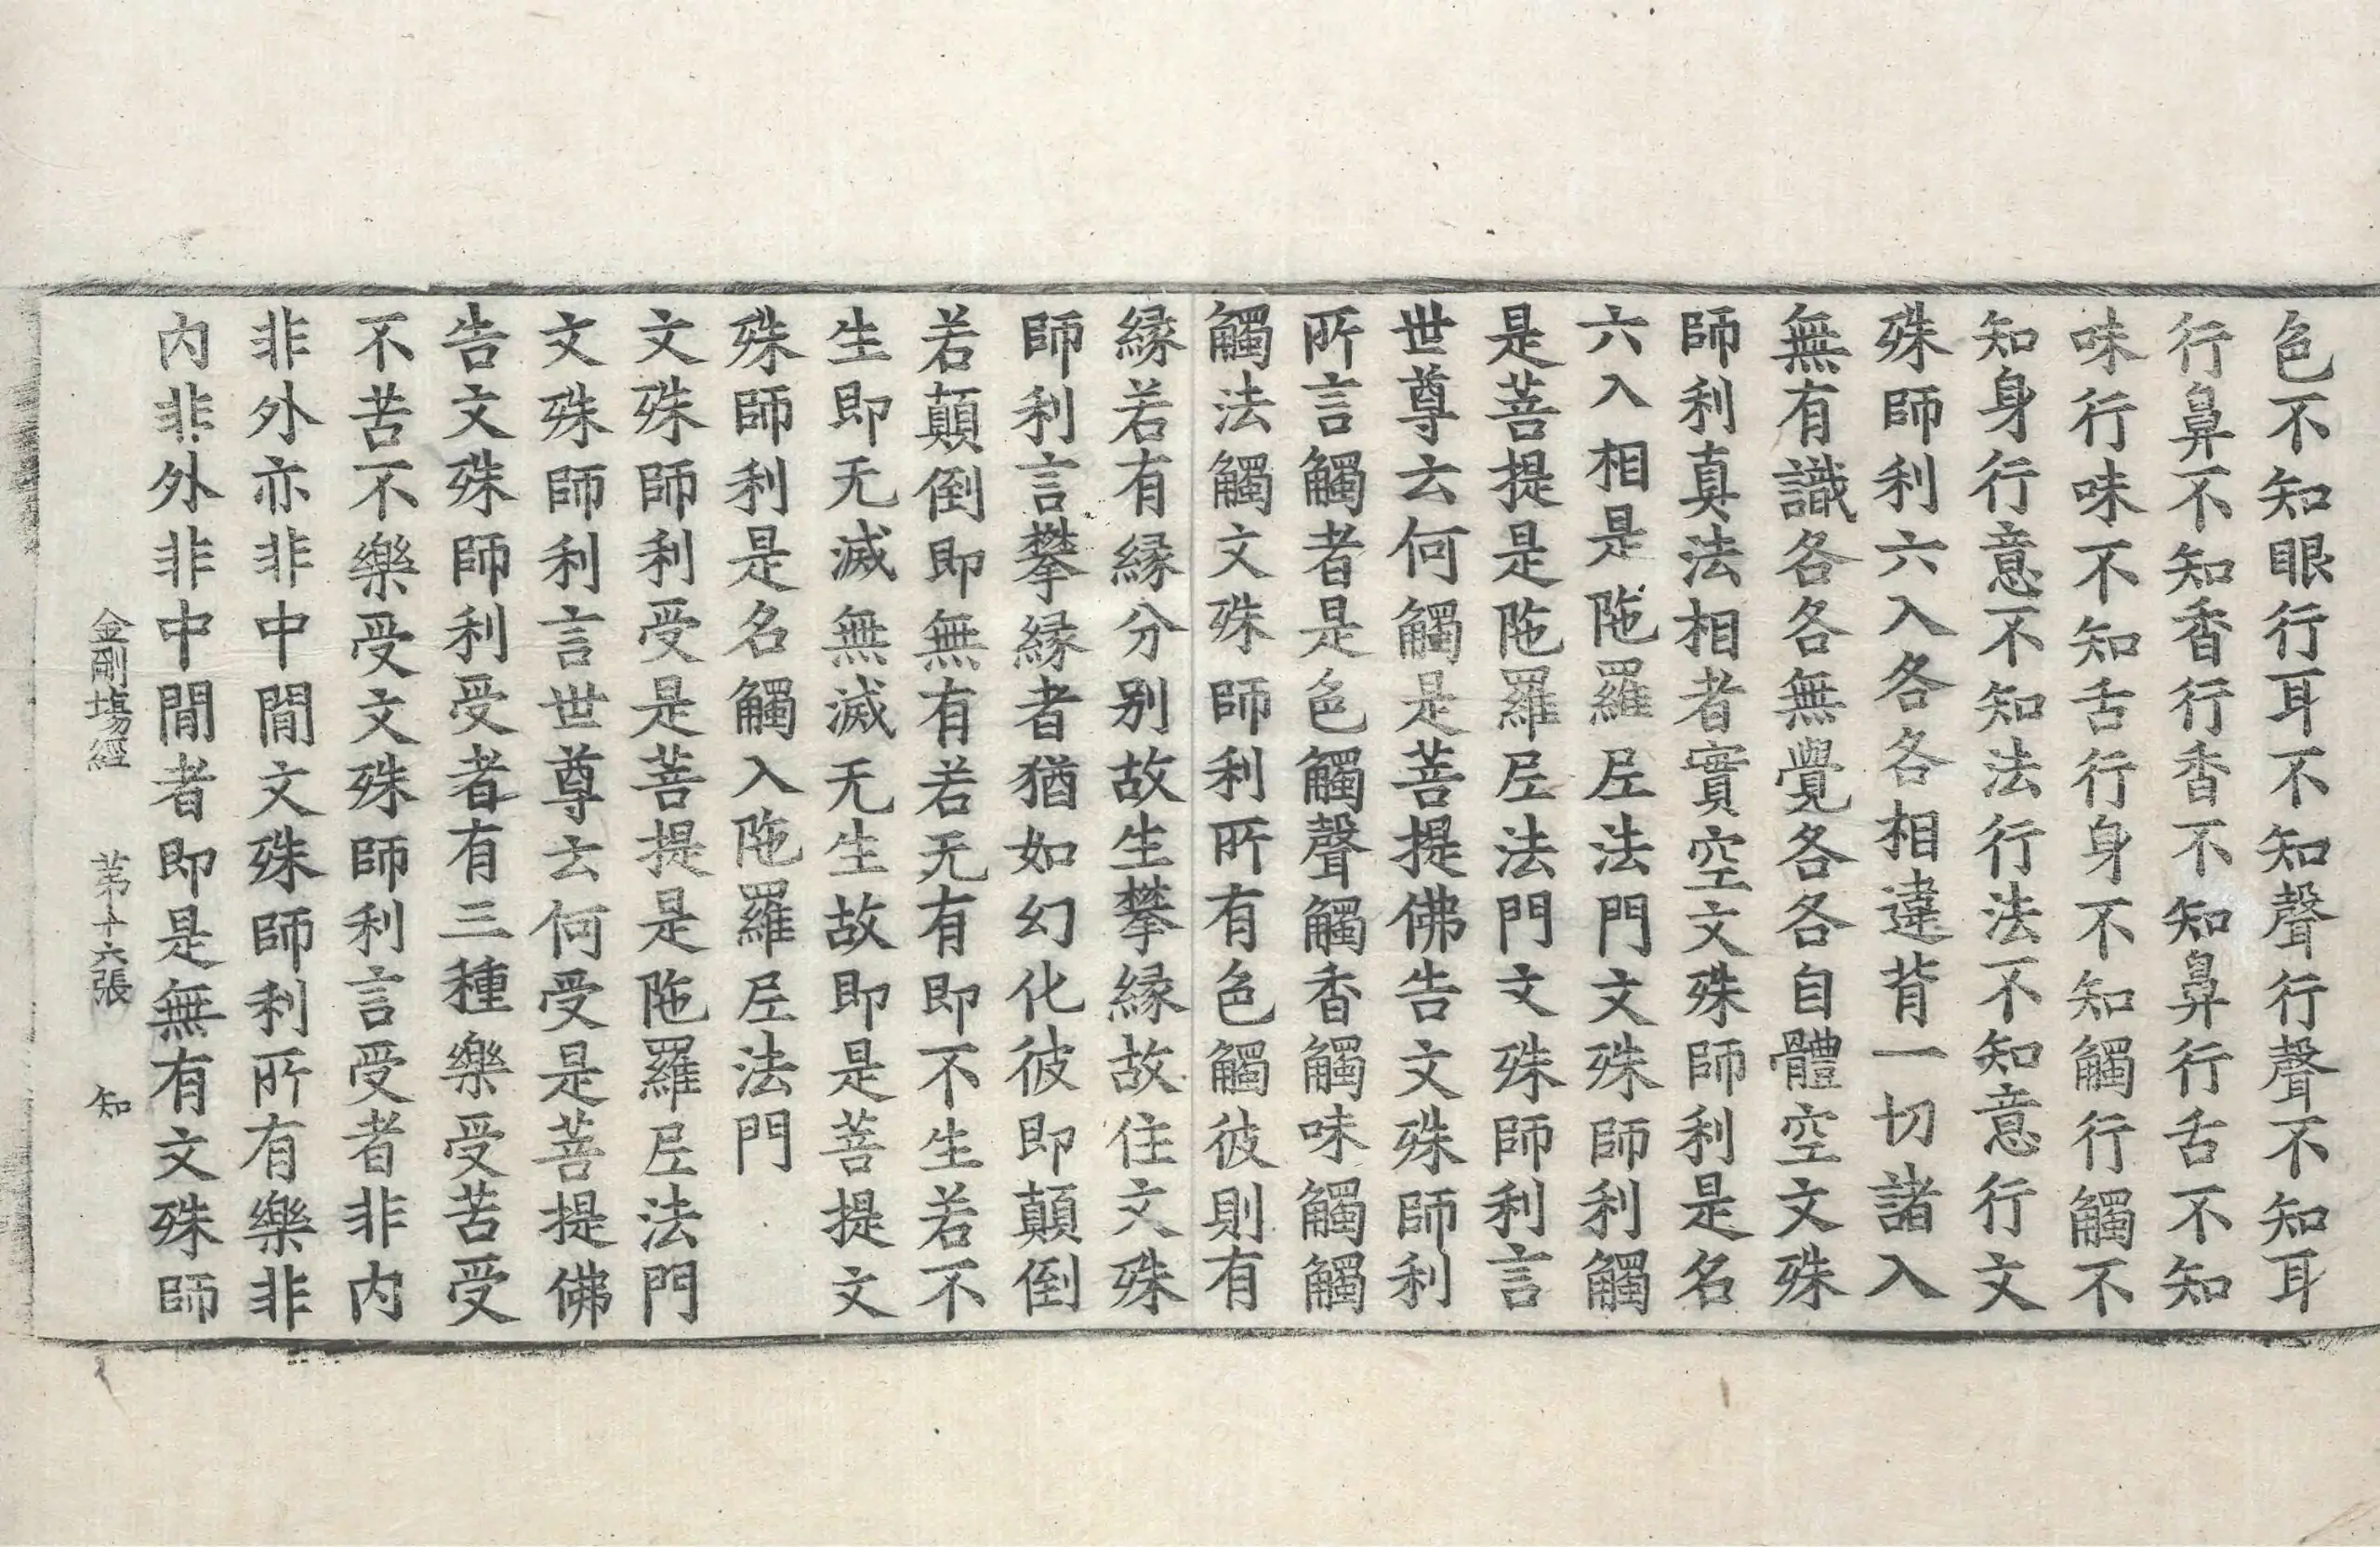 色不知眼行耳不知聲行聲不知耳
行鼻不知香行香不知鼻行舌不知
味行味不知舌行身不知觸行觸不
知身行意不知法行法不知意行文
殊師利六入各各相違背一切諸入
無有識各各無覺各各自體空文殊
師利真法相者實空文殊師利是名
六入相是陁羅𡰱法門文殊師利觸
是菩提是陁羅𡰱法門文殊師利言
世尊云何觸是菩提佛告文殊師利
所言觸者是色觸聲觸香觸味觸觸
觸法觸文殊師利所有色觸彼則有
緣若有緣分別故生攀緣故住文殊
師利言攀緣者猶如幻化彼即顛倒
若顛倒即無有若无有即不生若不
生即无滅無滅无生故即是菩提文
殊師利是名觸入陁羅𡰱法門
文殊師利受是菩提是陁羅𡰱法門
文殊師利言世尊云何受是菩提佛
告文殊師利受者有三種樂受苦受
不苦不樂受文殊師利言受者非内
非外亦非中閒文殊師利所有樂非
内非外非中閒者即是無有文殊師
金剛場經 苐十六張 知